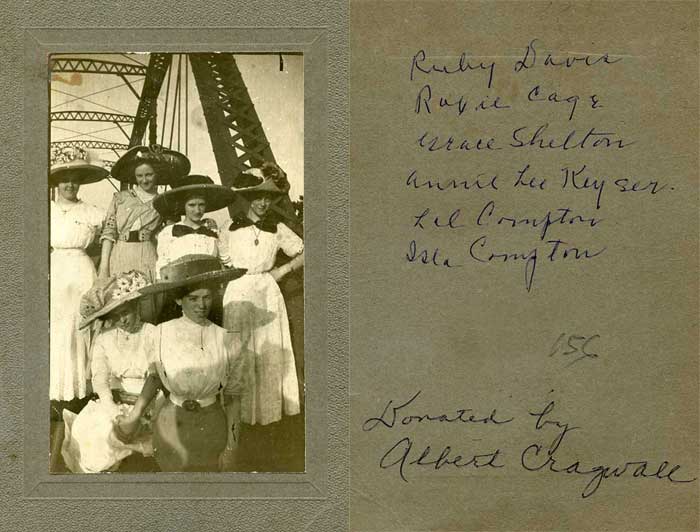 Ruby Davis
Roxie Cage
Grace Shelton
Annie Lee Keyser.
Lel Compton
Isla Compton
156
Donated by
Albert Cragwall